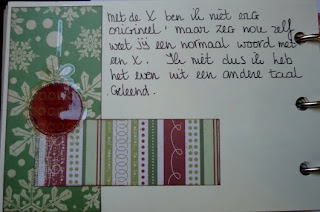 Met de X ben ik niet erg
origineel, maar zeg nou zelf
weet jij een normaal woord met
een X. Ik niet dus ik heb
het even uit een andere taal
geleend.